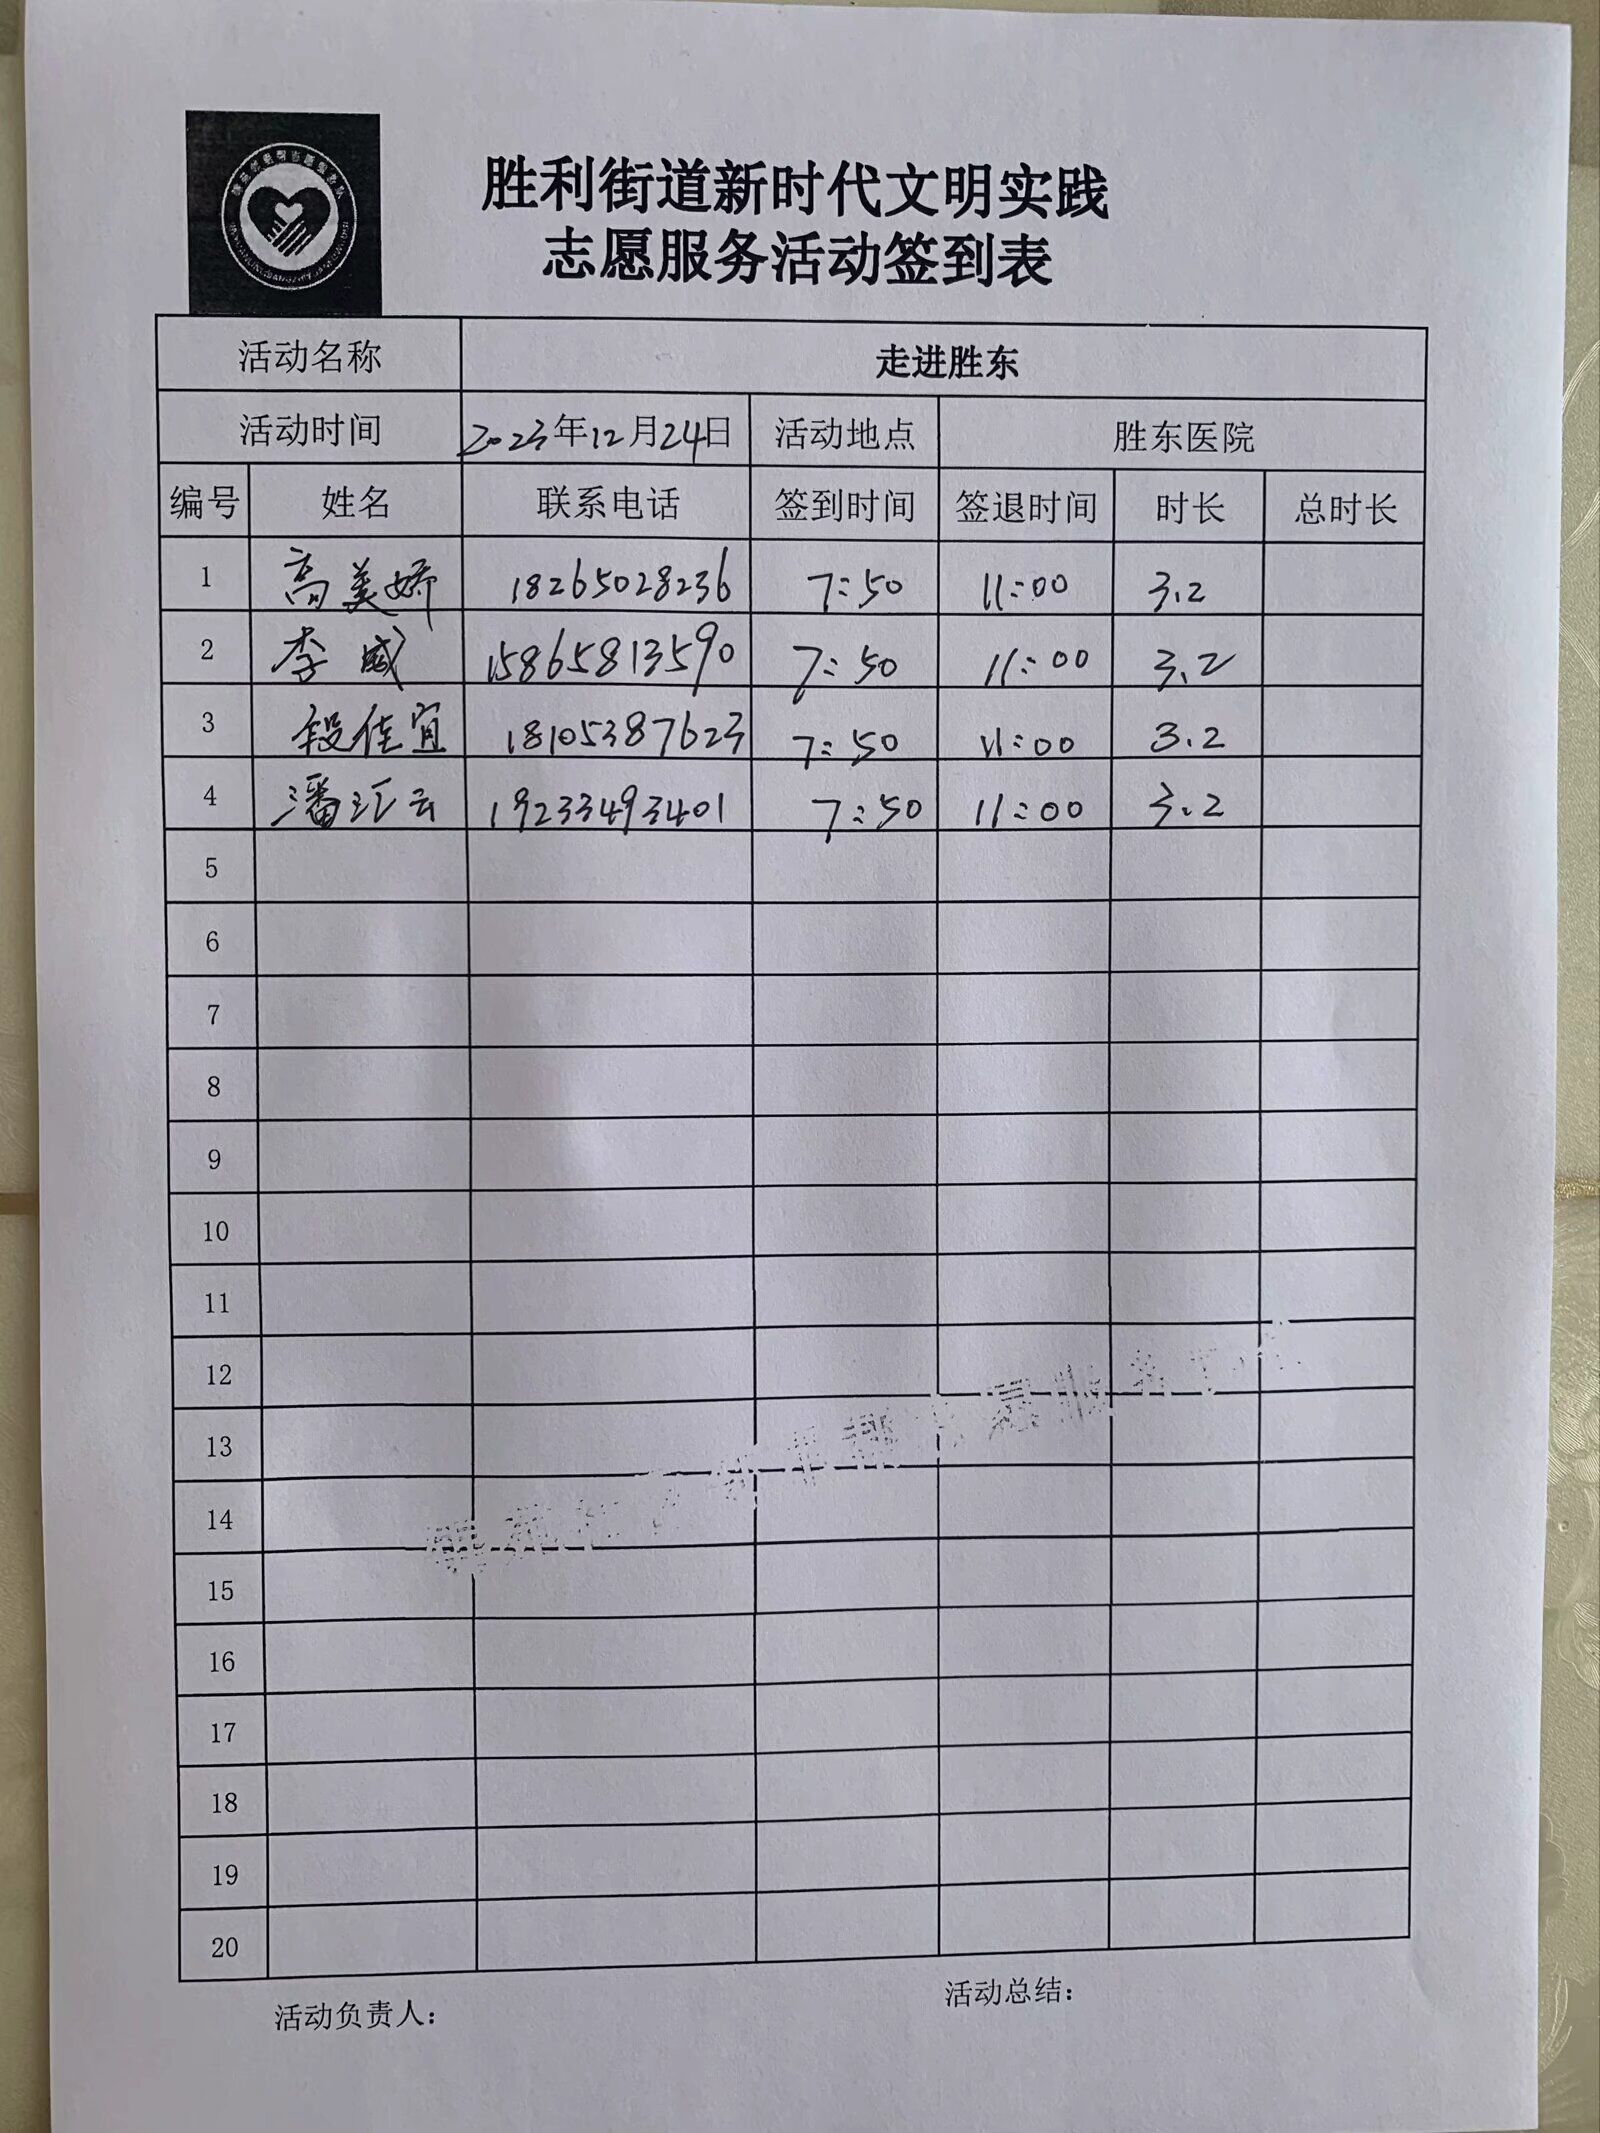 胜利街道新时代文明实践
志愿服务活动签到表
活动名称 走进胜东
活动时间 2023年12月24日 活动地点 胜东医院
编号 姓名 联系电话 签到时间 签退时间 时长 总时长
1 高美娇 18265028236 7:50 11:00 3.2
2 李威 15865813590 7:50 11:00 3.2
3 段佳宜 18105387623 7:50 11:00 3.2
4 潘汇云 19233493401 7:50 11:00 3.2
5
6
7
8
9
10
11
12
13
14
15
16
17
18
19
20
活动负责人: 活动总结: